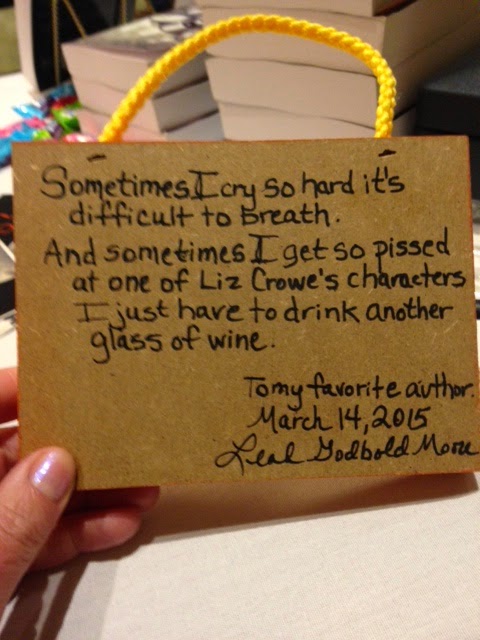 Sometimes I cry so hard it's
difficult to breath.
And sometimes I get so pissed
at one of Liz Crowe's characters
I just have to drink another
glass of wine.
To my favorite author.
March 14, 2015
Leah Godbold Moore